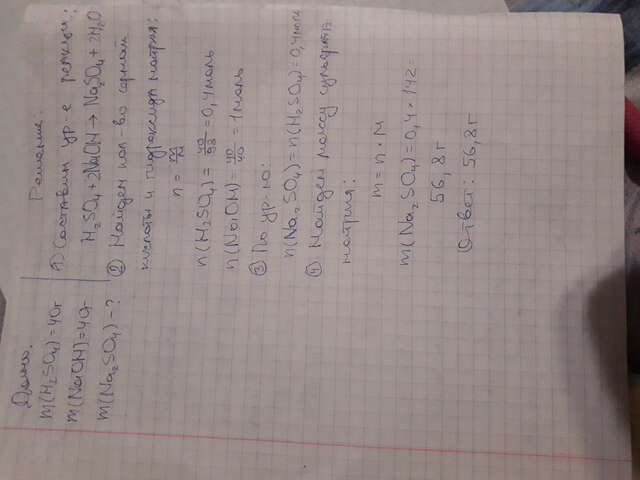 Дано:
m(H₂SO₄)=40г
m(NaOH)=40г
m(Na₂SO₄)-?
Решение:
1) Составим ур-е реакции:
H₂SO₄+2NaOH→Na₂SO₄+2H₂O
② Найдем кол-во серной
кислоты и гидроксида натрия:
n = m/M
n(H₂SO₄)= 40/98 =0,4моль
n(NaOH)= 40/40 =1моль
③ По ур-ю:
n(Na₂SO₄)=n(H₂SO₄)=0,4моль
④ Найдем массу сульфата
натрия:
m = n · M
m(Na₂SO₄)=0,4·142=
56,8г
Ответ: 56,8г